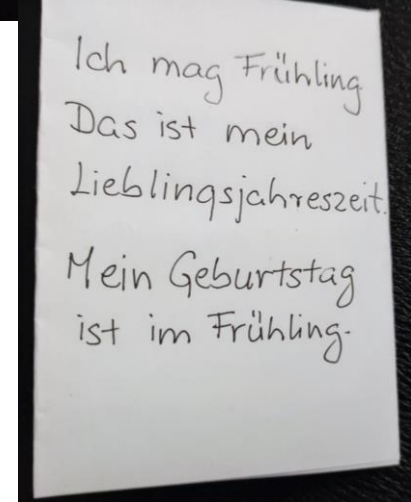 Ich mag Frühling
Das ist mein
Lieblingsjahreszeit.
Mein Geburtstag
ist im Frühling.